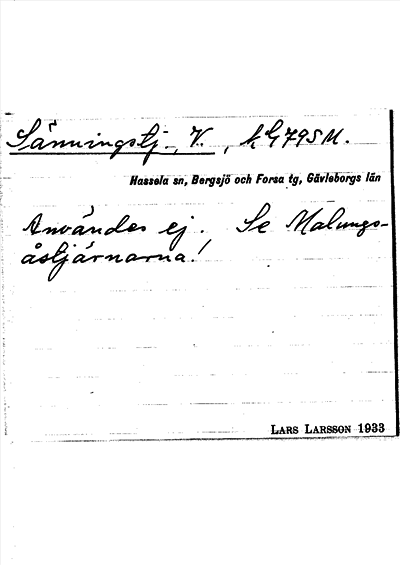 Sänningstj., V., kG795M.
Hassela sn, Bergsjö och Forsa tg, Gävleborgs län
Användes ej. Se Malungs-
åstjärnarna!
LARS LARSSON 1933